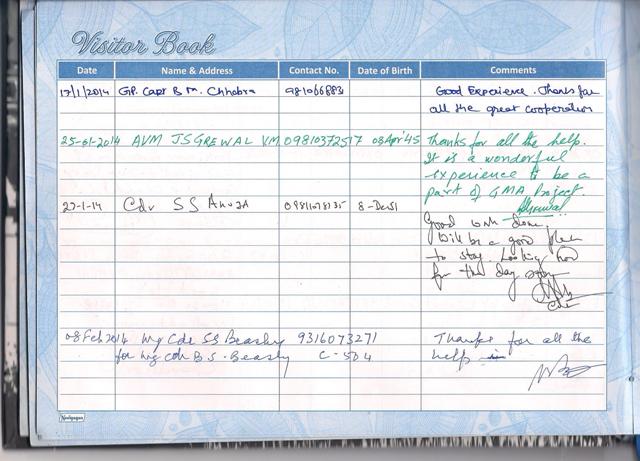 Visitor Book
Date Name & Address Contact No. Date of Birth Comments
17/1/2014 GP. Capt B M. Chhabra Good Experience. Thanks for
all the great cooperation
25-01-2014 AVM JS GREWAL VM 09810372517 03 Apr '45 Thanks for all the help.
It is a wonderful
experience to be a
part of GMA Project.
Grewal
27-1-14 Cdr S S Ahuja 8-Dec51
Good work done.
Will be a good place
to stay. Looking
for the day
Cdr
08 Feb 2014 Wg Cdr SS Beasly 9316073271 Thanks for all the
for Wg Cdr B S. Beasly C-504 help
Neelgagan